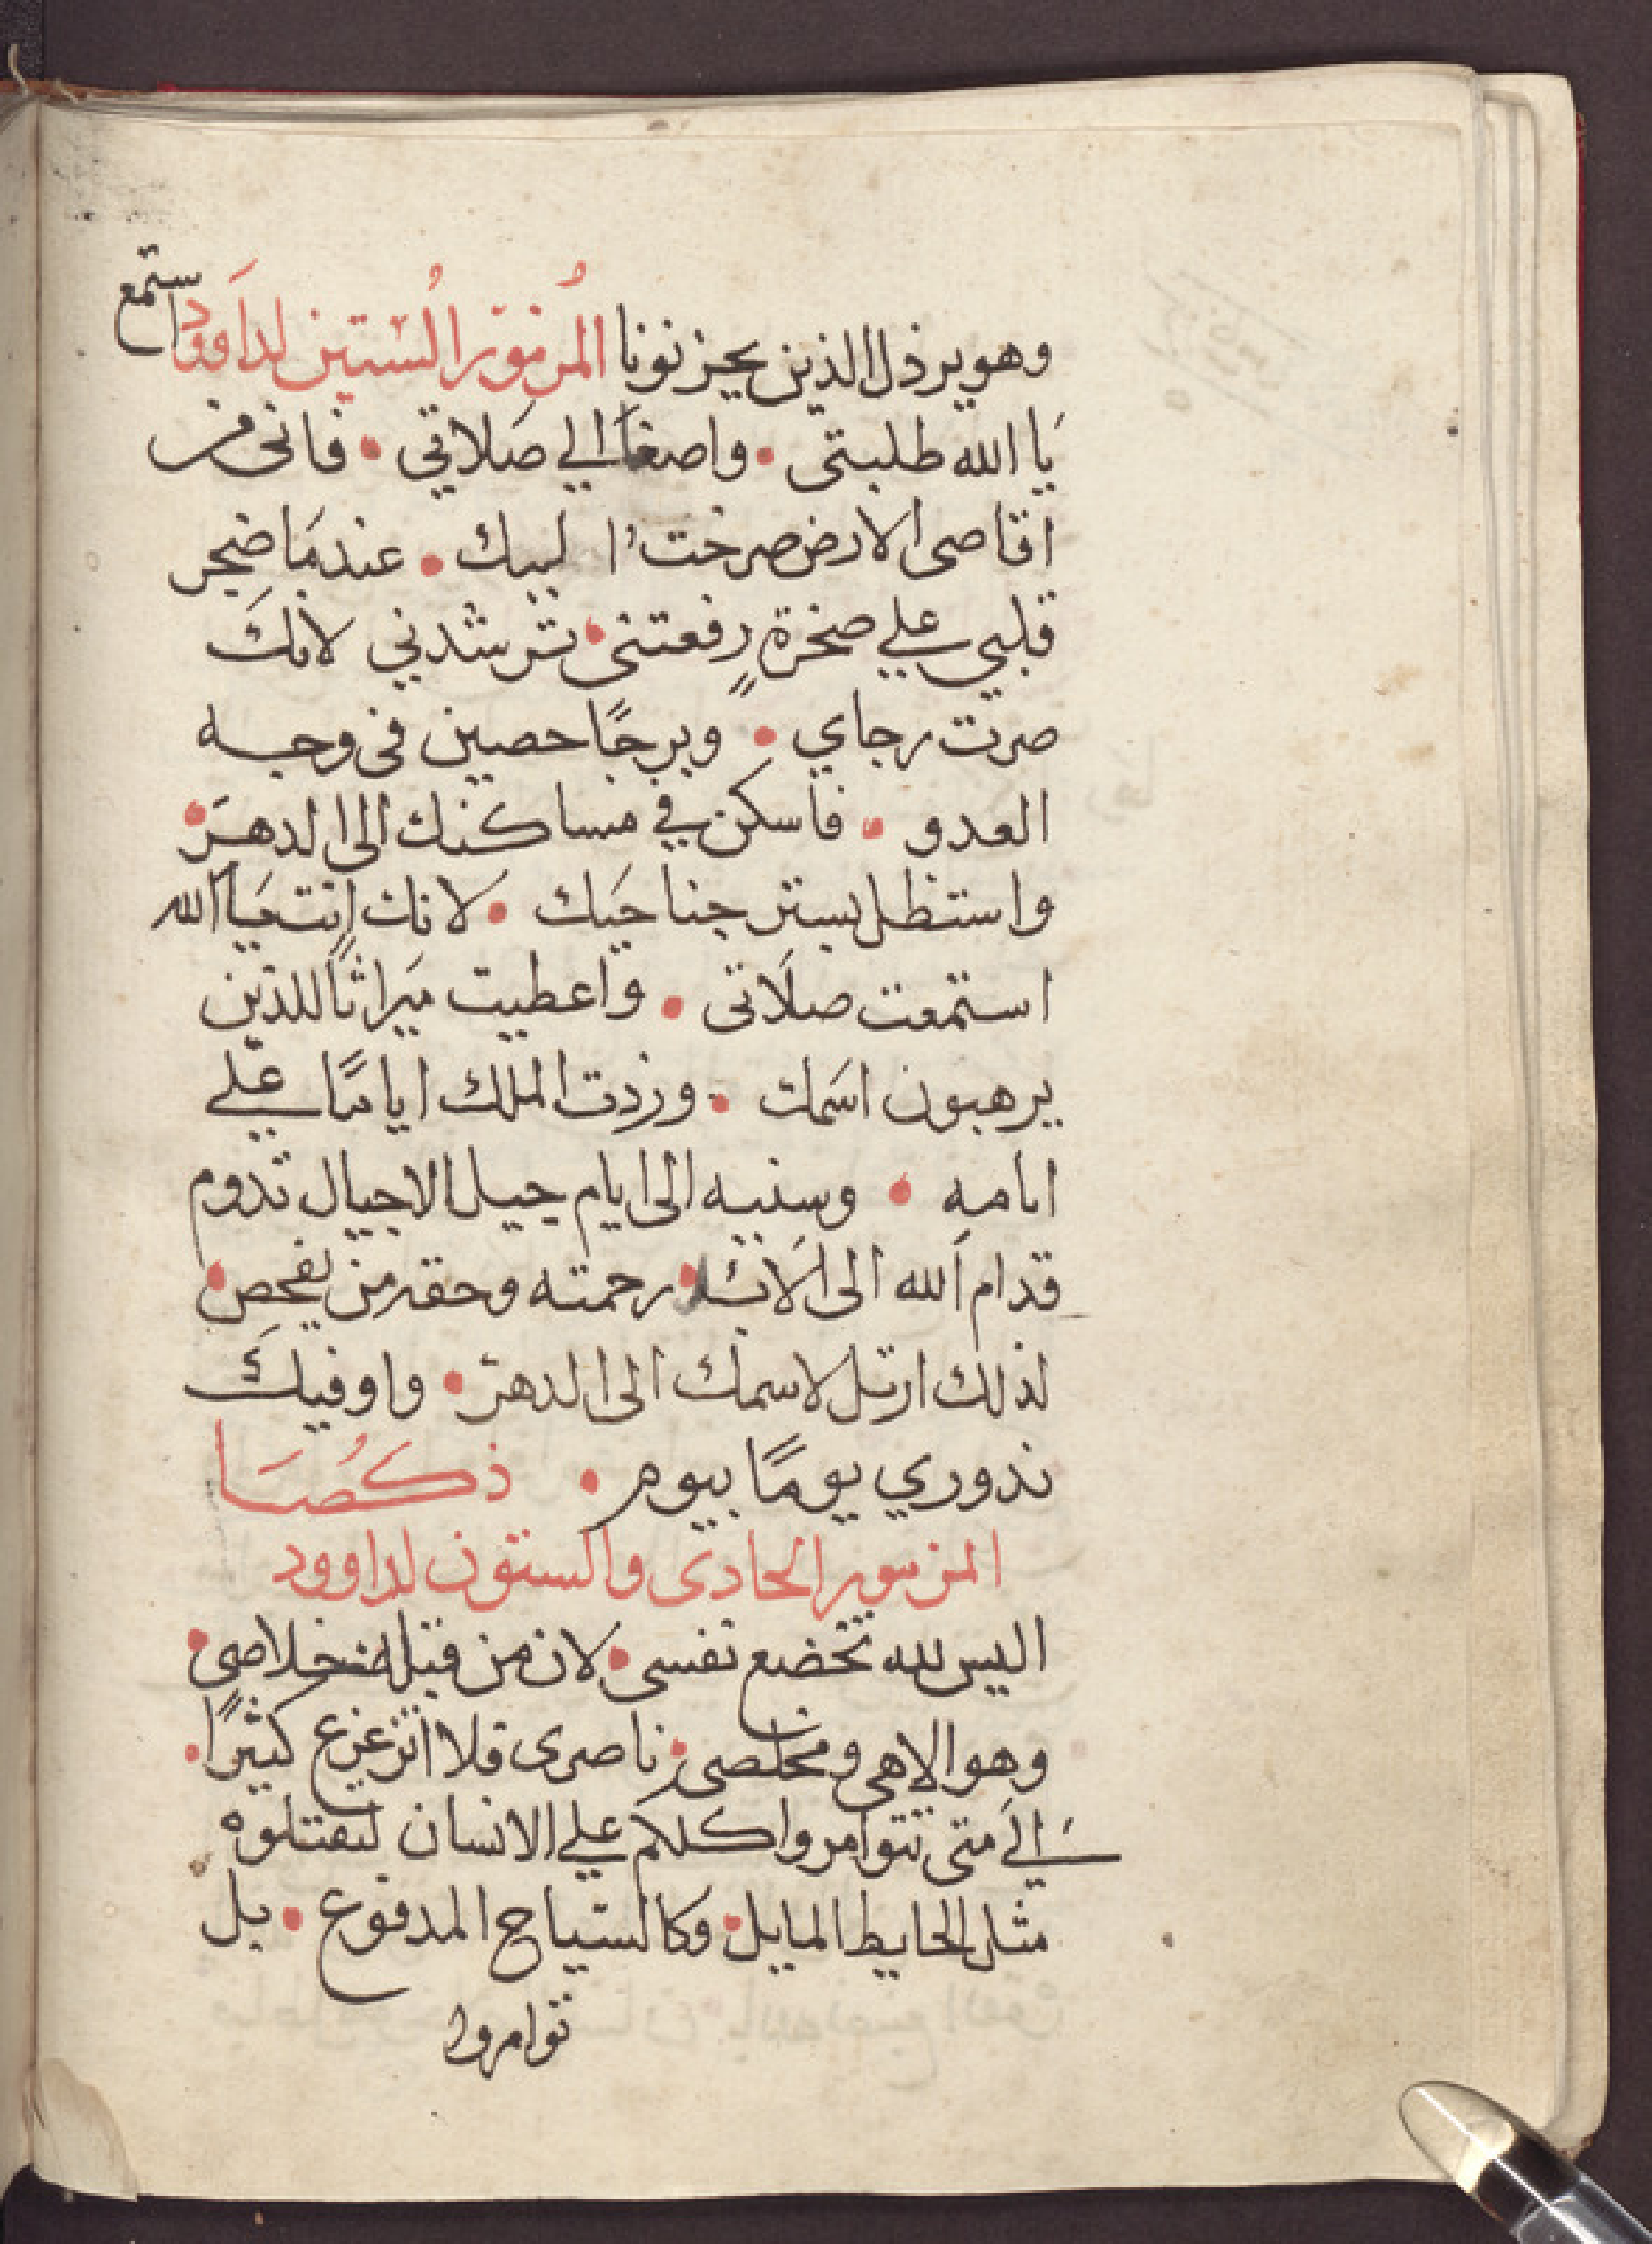 وهو يرذل الذين يحزنونا المزمور الستين لداوود استمع
يا الله طلبتي • واصغا الي صلاتي • فاني من
اقاصي الارض صرخت ا ليك • عندما ضجر
قلبي علي صخرةٍ رفعتني • ترشدني لانك
صرت رجاي • وبرجًا حصين في وجه
العدو • فاسكن في مساكنك الى الدهر •
واستظل بستر جناحيك • لانك انت يا الله
استمعت صلاتي • واعطيت ميراثًا للذين
يرهبون اسمك • وزدت الملك ايامًا علي
ايامه • وسنيه الى ايام جيل الاجيال تدوم
قدام الله الى الابد • رحمته وحقه من يفحص •
لذلك ارتل لاسمك الى الدهر • واوفيك
ندوري يومًا بيوم • ذكصا
المزمور الحادي والستون لداوود
اليس لله تخضع نفسي • لان من قبله خلاصي •
وهو الاهي ومخلصي • ناصري فلا اتزعزع كثيرًا •
الي متى تتوامروا كلكم علي الانسان لتقتلوه
مثل الحايط المايل • وكالسياج المدفوع • بل
توامروا